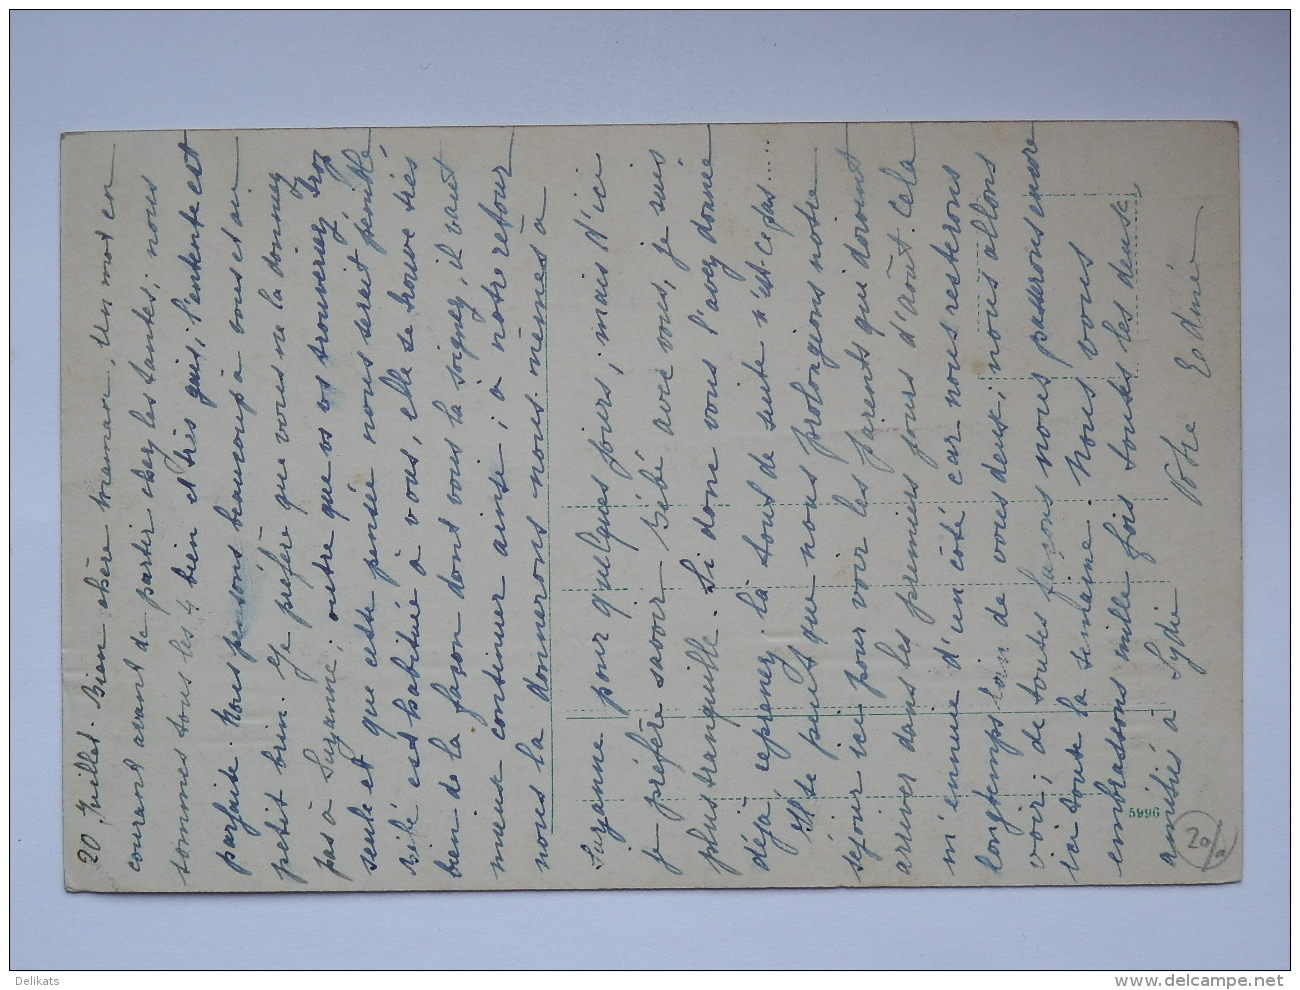 20 Juillet. Bien chère maman, Un mot en
courant avant de partir chez les tantes, nous
sommes tous les 4 bien et très gais, l'entente est
parfaite. Nous pensons beaucoup à vous et au
petit brin. Je préfère que vous ne la donniez
pas à Suzanne; outre que vs vs trouveriez trop
seule et que cette pensée nous serait pénible
Bébé est habituée à vous, elle se trouve très
bien de la façon dont vous la soignez, il vaut
mieux continuer ainsi; à notre retour
nous la donnerons nous-mêmes à
Suzanne pour quelques jours, mais d'ici
je préfère savoir Bébé avec vous, je suis
plus tranquille. Si donc vous l'avez donnée
déjà, reprenez-là tout de suite n'est-ce pas.....
Il se peut que nous prolongions notre
séjour ici pour voir les parents qui doivent
arriver dans les premiers jours d'août. Cela
m'ennuie d'un côté car nous resterons
longtemps loin de vous deux; nous allons
voir; de toutes façons nous passerons encore
ici toute la semaine. Nous vous
embrassons mille fois toutes les deux,
amitiés à Lydie
Votre Edmée
5996
20/
Delikats
www.delcampe.net